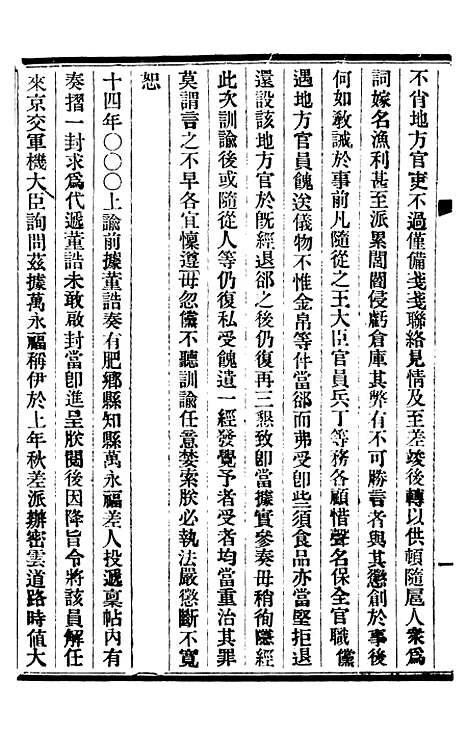 不肖地方官吏不過僅備戔戔聯絡見情及至差竣後轉以供頓隨扈人衆爲
詞嫁名漁利甚至派累閭閻侵虧倉庫其弊有不可勝言者與其懲創於事後
何如教誡於事前凡隨從之王大臣官員兵丁等務各顧惜聲名保全官職儻
遇地方官員餽送儀物不惟金帛等件當郤而弗受卽些須食品亦當堅拒退
還設該地方官於旣經退郤之後仍復再三懇致卽當據實參奏毋稍徇隱經
此次訓諭後或隨從人等仍復私受餽遺一經發覺予者受者均當重治其罪
莫謂言之不早各宜懍遵毋忽儻不聽訓諭任意婪索朕必執法嚴懲斷不寬
恕
十四年〇〇〇上諭前據董誥奏有肥鄕縣知縣萬永福差人投遞稟帖內有
奏摺一封求爲代遞董誥未敢啟封當卽進呈朕閱後因降旨令將該員解任
來京交軍機大臣詢問茲據萬永福稱伊於上年秋差派辦密雲道路時値大